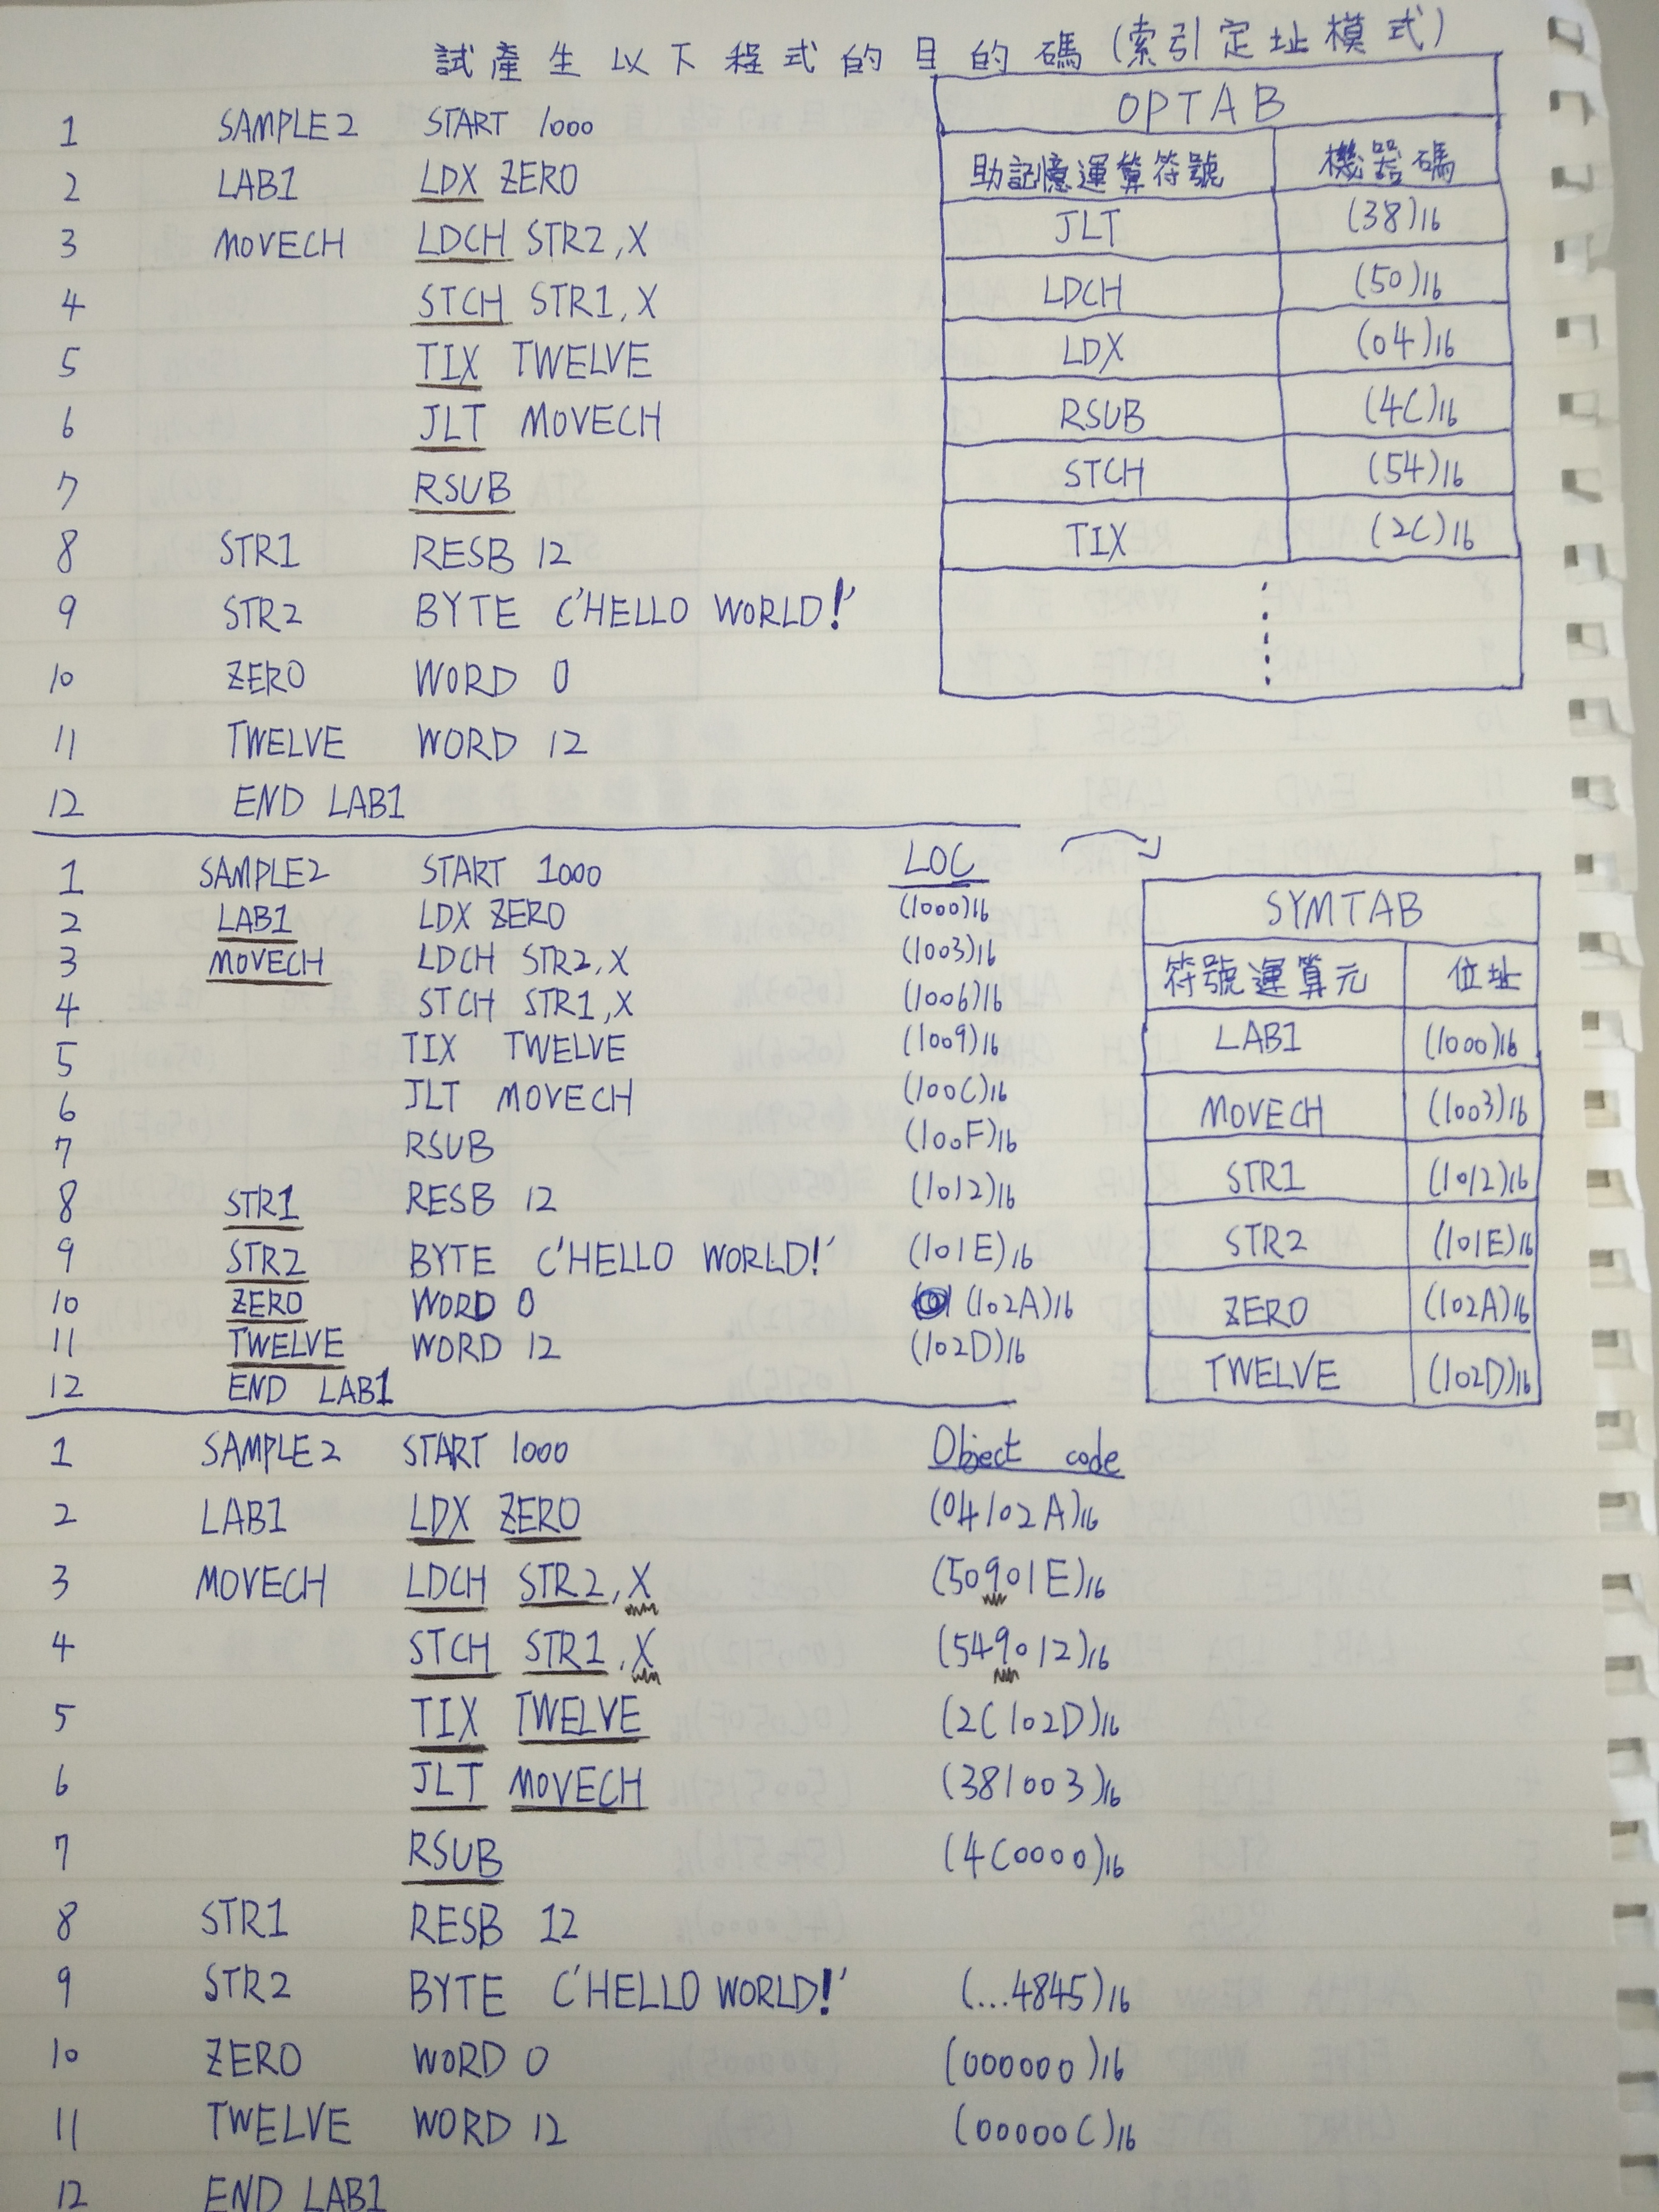 試產生以下程式的目的碼(索引定址模式)
1 SAMPLE2 START 1000
2 LAB1 LDX ZERO
3 MOVECH LDCH STR2,X
4 STCH STR1,X
5 TIX TWELVE
6 JLT MOVECH
7 RSUB
8 STR1 RESB 12
9 STR2 BYTE C'HELLO WORLD!'
10 ZERO WORD 0
11 TWELVE WORD 12
12 END LAB1
OPTAB
助記憶運算符號 機器碼
JLT (38)16
LDCH (50)16
LDX (04)16
RSUB (4C)16
STCH (54)16
TIX (2C)16
LOC
1 SAMPLE2 START 1000
2 LAB1 LDX ZERO (1000)16
3 MOVECH LDCH STR2,X (1003)16
4 STCH STR1,X (1006)16
5 TIX TWELVE (1009)16
6 JLT MOVECH (100C)16
7 RSUB (100F)16
8 STR1 RESB 12 (1012)16
9 STR2 BYTE C'HELLO WORLD!' (101E)16
10 ZERO WORD 0 (102A)16
11 TWELVE WORD 12 (102D)16
12 END LAB1
SYMTAB
符號運算元 位址
LAB1 (1000)16
MOVECH (1003)16
STR1 (1012)16
STR2 (101E)16
ZERO (102A)16
TWELVE (102D)16
1 SAMPLE2 START 1000 Object code
2 LAB1 LDX ZERO (04102A)16
3 MOVECH LDCH STR2,X (50901E)16
4 STCH STR1,X (549012)16
5 TIX TWELVE (2C102D)16
6 JLT MOVECH (381003)16
7 RSUB (4C0000)16
8 STR1 RESB 12
9 STR2 BYTE C'HELLO WORLD!' (...4845)16
10 ZERO WORD 0 (000000)16
11 TWELVE WORD 12 (00000C)16
12 END LAB1